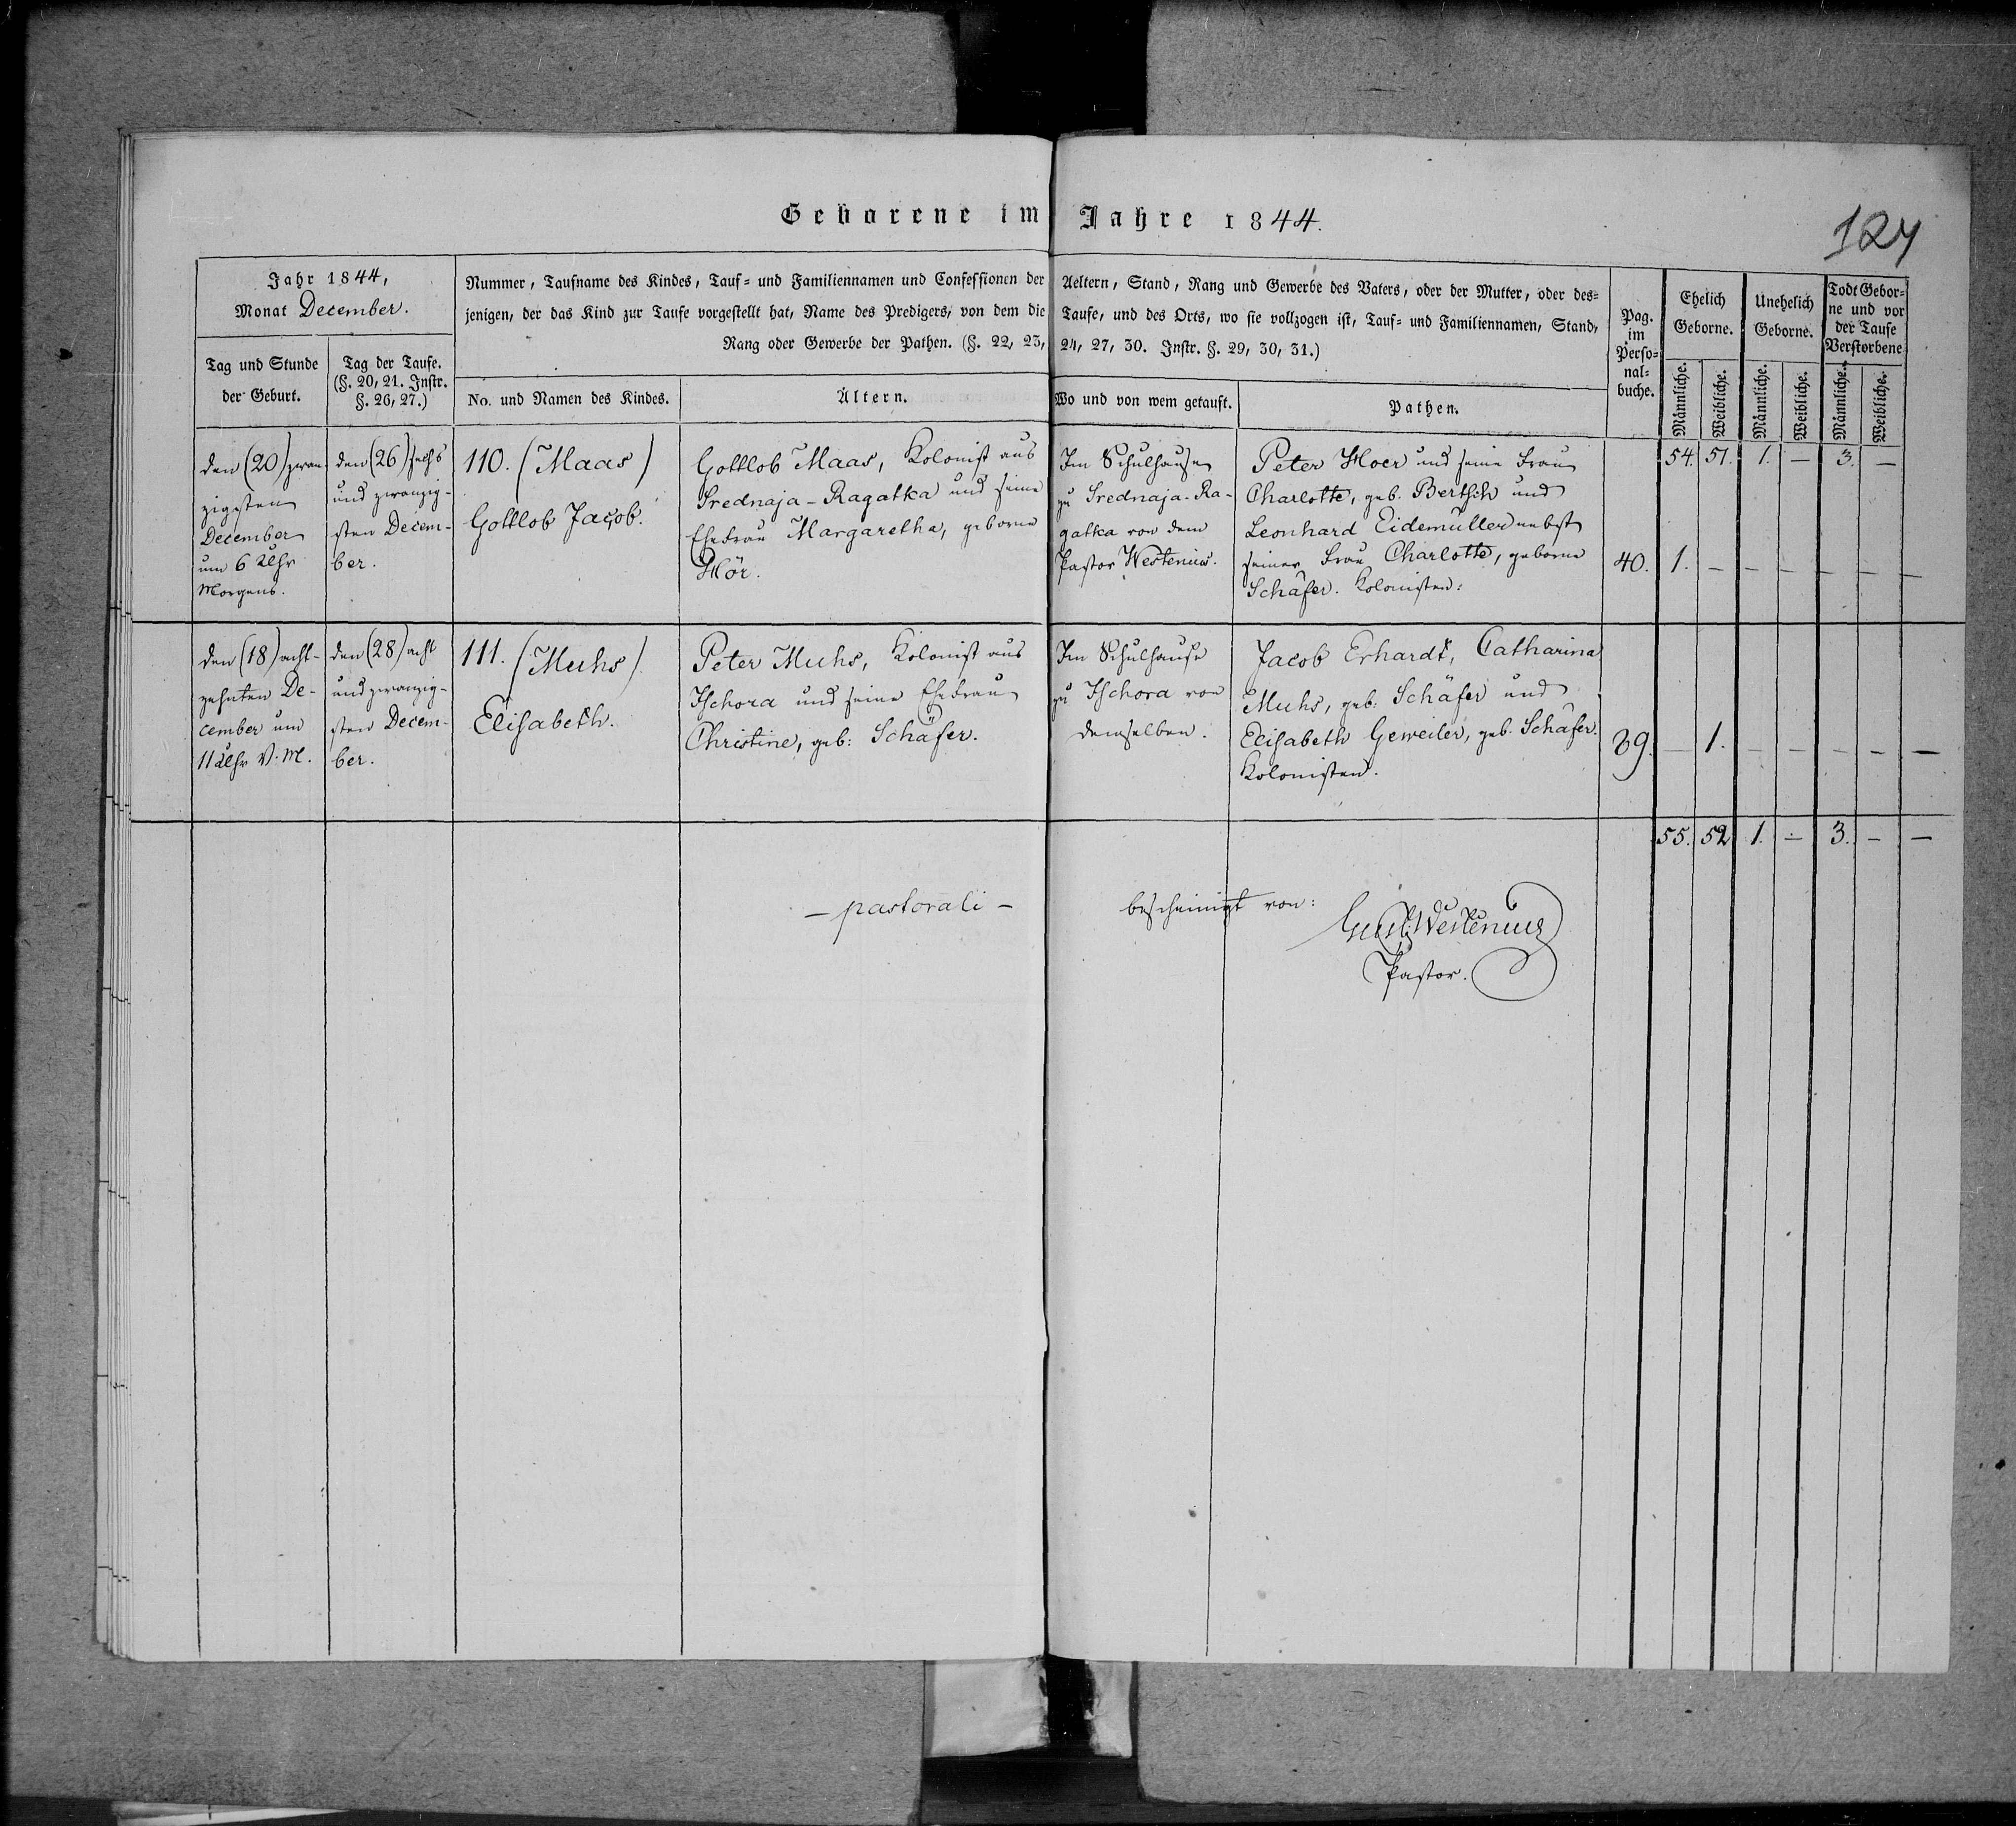 Geborene im Jahre 1844.
124
Jahr 1844,
Monat December.
Tag und Stunde
der Geburt.
Tag der Taufe.
(§. 20, 21. Instr.
§. 26, 27.)
Nummer, Taufname des Kindes, Tauf- und Familiennamen und Confessionen der Aeltern, Stand, Rang und Gewerbe des Vaters, oder der Mutter, oder des-
jenigen, der das Kind zur Taufe vorgestellt hat, Name des Predigers, von dem die Taufe, und des Orts, wo sie vollzogen ist, Tauf- und Familiennamen, Stand,
Rang oder Gewerbe der Pathen. (§. 22, 23, 24, 27, 30. Instr. §. 29, 30, 31.)
No. und Namen des Kindes.
Ältern.
Wo und von wem getauft.
Pathen.
Pag.
im
Perso-
nal-
buche.
Ehelich
Geborne.
Unehelich
Geborne.
Todt Gebor-
ne und vor
der Taufe
Verstorbene
Männliche.
Weibliche.
Männliche.
Weibliche.
Männliche.
Weibliche.
54. 51. 1. — 3. —
den (20) zwan-
zigsten
December
um 6 Uhr
Morgens.
den (26) sechs
und zwanzig-
sten Decem-
ber.
110. (Maas)
Gottlob Jacob.
Gottlob Maas, Kolonist aus
Srednaja-Ragatka und seine
Ehefrau Margaretha, geborne
Hör.
Im Schulhause
zu Srednaja-Ra-
gatka von dem
Pastor Westenius.
Peter Hoer und seine Frau
Charlotte, geb. Bertsch und
Leonhard Eidemüller nebst
seiner Frau Charlotte, geborne
Schäfer. Kolonisten.
40. 1. — — — — — —
den (18) acht-
zehnten De-
cember um
11 Uhr V. M.
den (28) acht
und zwanzig-
sten Decem-
ber.
111. (Muhs).
Elisabeth.
Peter Muhs, Kolonist aus
Ischora und seine Ehefrau
Christine, geb: Schäfer.
Im Schulhause
zu Ischora von
demselben.
Jacob Erhardt, Catharina
Muhs, geb: Schäfer und
Elisabeth Geweiler, geb. Schäfer.
Kolonisten.
39. — 1. — — — — —
55. 52 1. — 3. — —
— pastorali — bescheinigt von:
Gust. Westenius
Pastor.